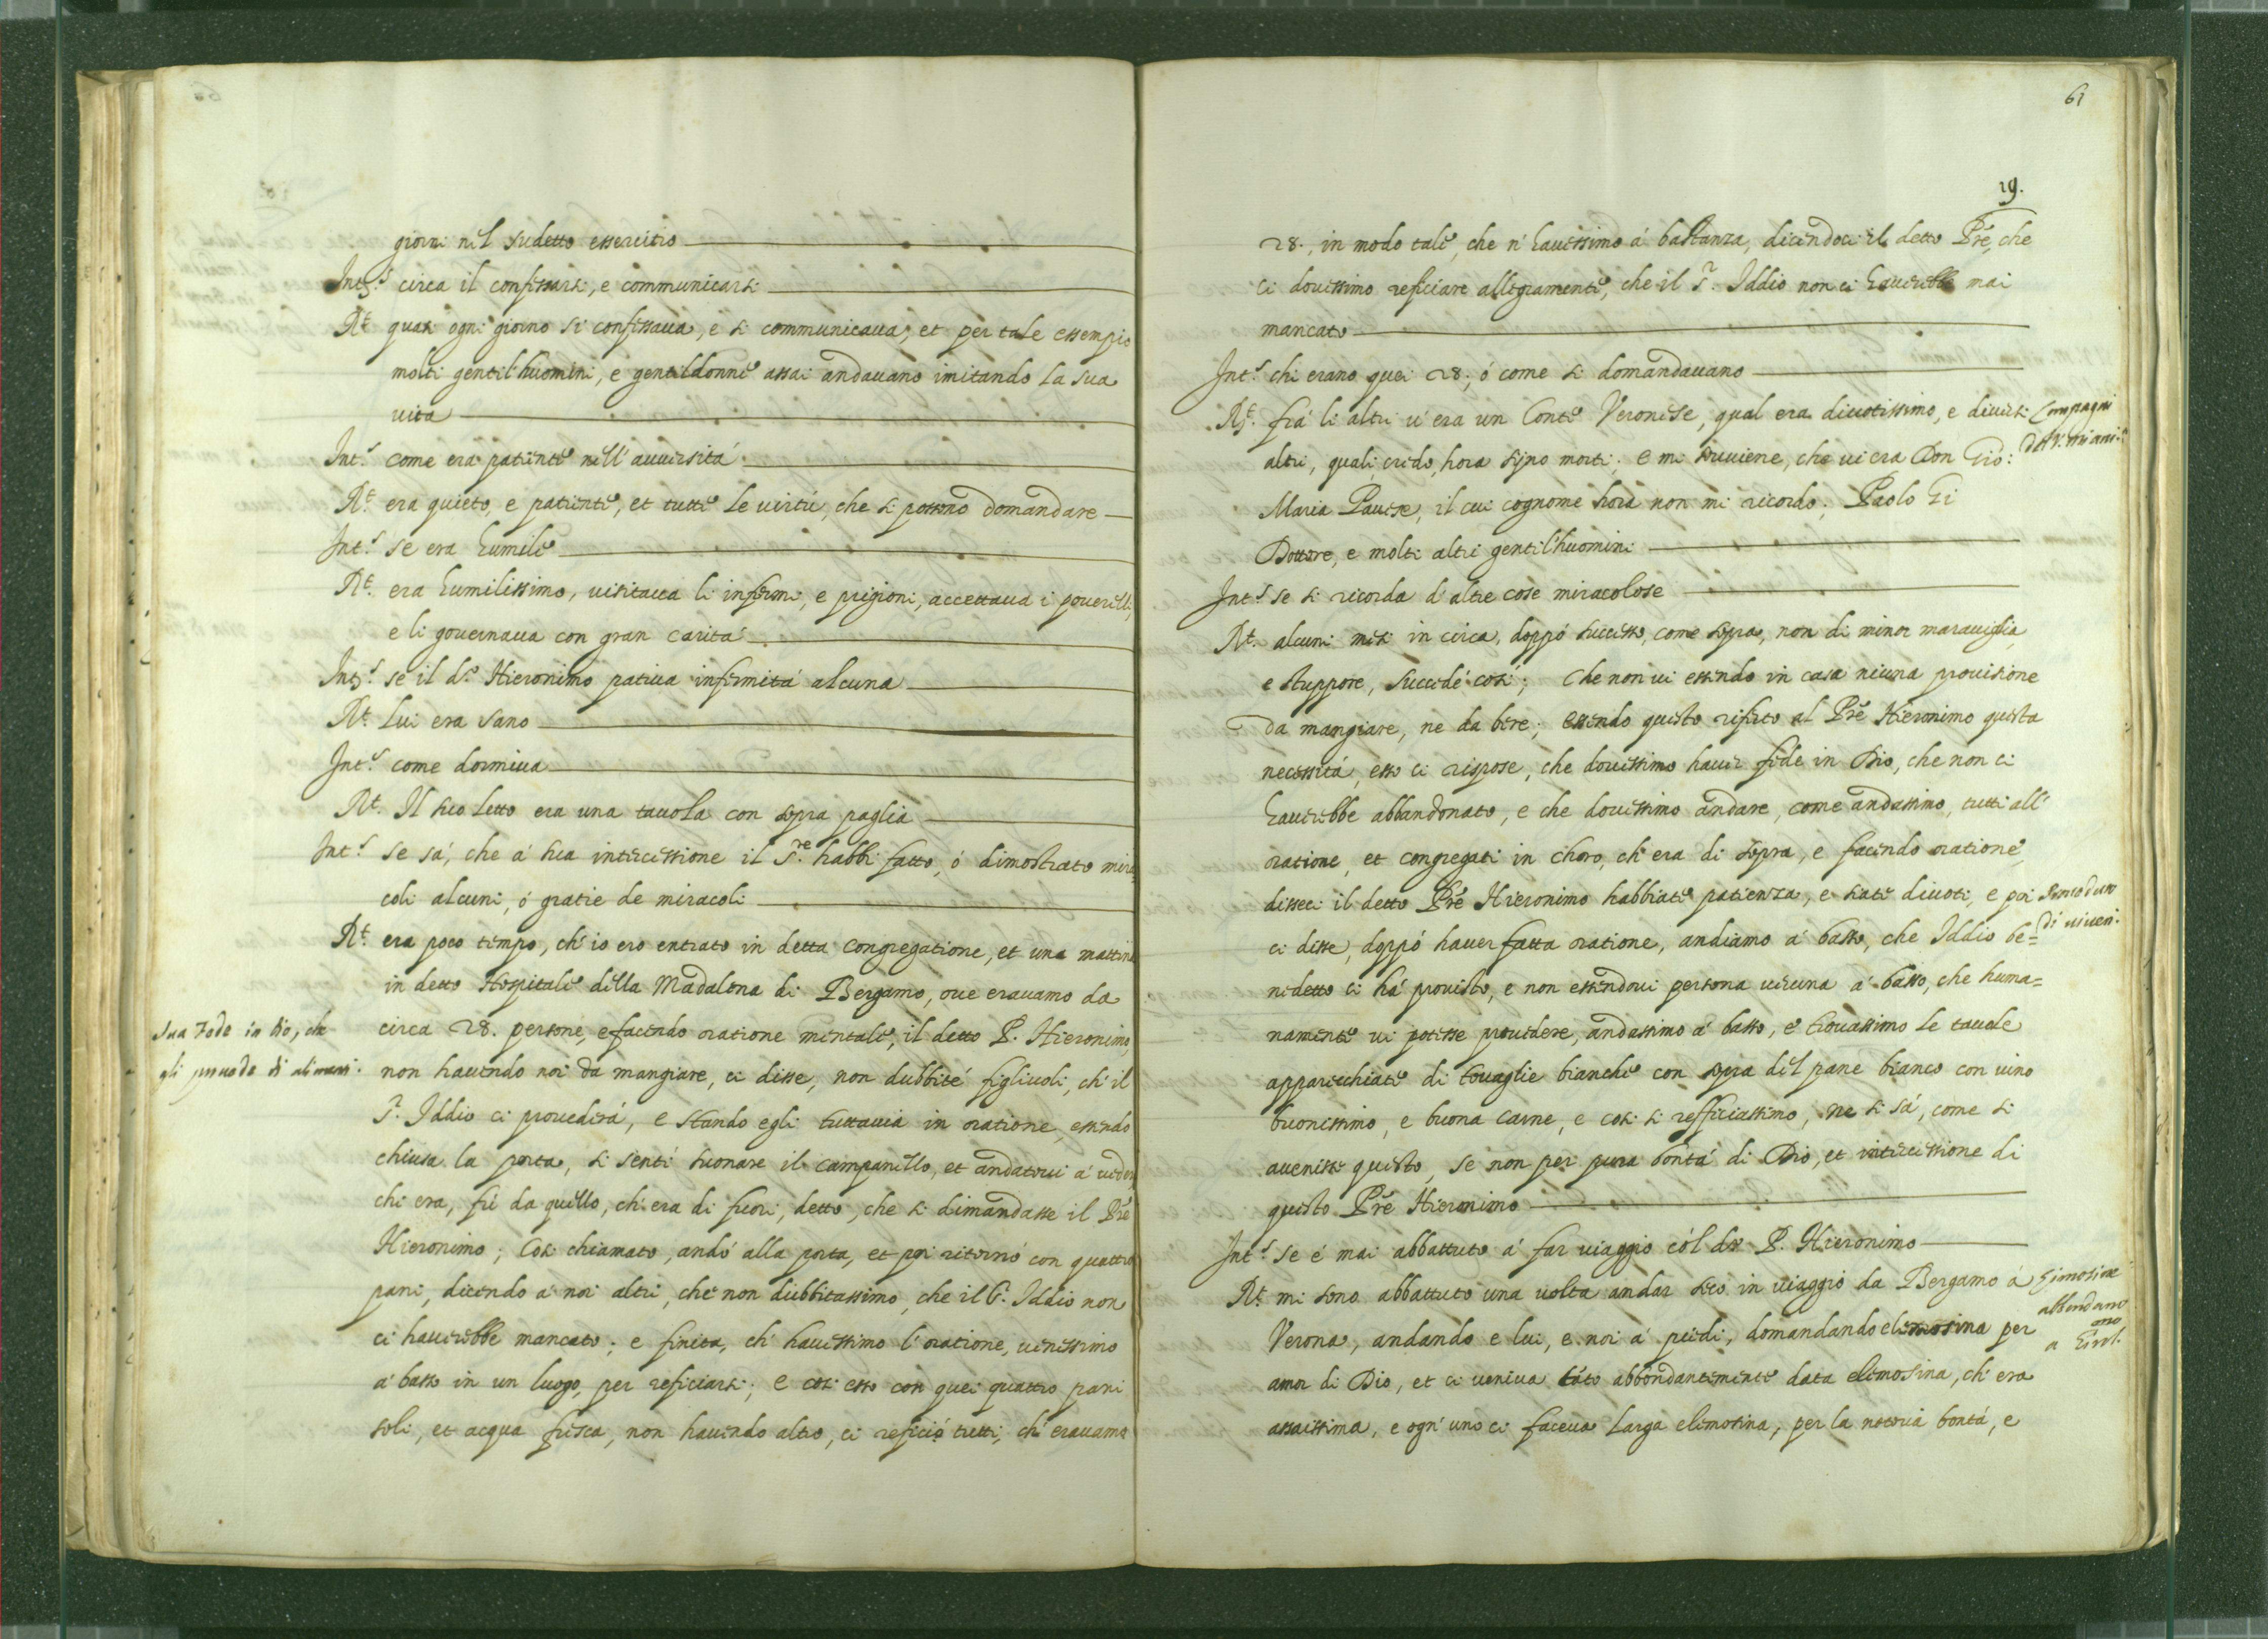 giorni nel sudetto essercitio
Int.s circa il confessarsi, e communicarsi
Rt. quasi ogni giorno si confessava, e si communicava, et per tale essempio
molti gentil'huomini, e gentildonne assai andavano imitando la sua
vita
Int.s come era patiente nell'avversitá
Rt. era quieto, e patiente, et tutte le virtú, che si possono domandare
Int.s se era humile
Rt. era humilissimo, visitava li infermi, e prigioni, accettava i poverelli,
e li governava con gran caritá
Int.s se il d.o Hieronimo pativa infermitá alcuna
Rt. Lui era sano
Int.s come dormiva
Rt. Il suo letto era una tavola con sopra paglia
Int.s se sá, che á sua intercessione il S.re habbi fatto, ó dimostrato mira
coli alcuni, ó gratie de miracoli
Rt. era poco tempo, ch'io ero entrato in detta congregatione, et una mattina
in detto Hospitale della Madalena di Bergamo, ove eravamo da
circa 28. persone, e facendo oratione mentale, il detto P. Hieronimo,
sua Fede in Dio, che
gli provede di alimenti.
non havendo noi da mangiare, ci disse, non dubbité figliuoli, ch'il
S.r Iddio ci provederá, e stando egli tuttavia in oratione, essendo
chiusa la porta, si sentí suonare il campanello, et andatovi á veder
chi era, fú da quello, ch'era di fuori, detto, che si dimandasse il Pre
Hieronimo; Cosi chiamato, andó alla porta, et poi ritornó con quattro
pani, dicendo á noi altri, che non dubbitassimo, che il S. Iddio non
ci haverebbe mancato; e finita, ch'havessimo l'oratione, venissimo
á basso in un luogo, per reficiarsi; e cosi esso con quei quattro pani
soli, et acqua fresca, non havendo altro, ci refició tutti, ch'eravamo
61
19.
28., in modo tale, che n'havessimo á bastanza, dicendoci il detto Pre, che
ci dovessimo reficiare allegramente, che il S.r Iddio non ci haverebbe mai
mancato
Int.s chi erano quei 28; ó come si domandavano
Rt. frá li altri v'era un Conte Veronese, qual era divotissimo, e diversi
Compagni
del V. Miani.
altri, quali, credo, hora sijno morti; e mi soviene, che vi era Don Gio:
Maria Pavese, il cui cognome hora non mi ricordo; Paolo Gi
Dottore, e molti altri gentil'huomini
Int.s se si ricorda d'altre cose miracolose
Rt. alcuni mesi in circa, doppó successo, come sopra, non di minor maraviglia,
e stuppore, succedé cosí; Che non vi essendo in casa niuna provisione
da mangiare, ne da bere; essendo questo riferto al Pre Hieronimo questa
necessitá, esso ci rispose, che dovessimo haver fede in Dio, che non ci
haverebbe abbandonato, e che dovessimo andare, come andassimo, tutti all'
oratione, et congregati in choro, ch'era di sopra, e facendo oratione,
disseci il detto Pre Hieronimo habbiate patienza, e siate divoti, e poi
di viveri.
ci disse, doppó haver fatta oratione, andiamo á basso, che Iddio be=
nedetto ci há provisto, e non essendovi persona veruna á basso, che huma=
namente vi potesse provedere, andassimo á basso, e trovassimo le tavole
apparecchiate di tovaglie bianche con sopra del pane bianco con vino
buonissimo, e buona carne, e cosi si refficiassimo, ne si sá, come si
avenisse questo, se non per pura bontá di Dio, et intercissione di
questo Pre Hieronimo
Int.s se é mai abbattuto á far viaggio cól do P. Hieronimo
Rt. mi sono abbattuto una volta andar seco in viaggio da Bergamo á
Elimosine
abbondano
Verona, andando e lui, e noi á piedi, domandando elemosina per
amor di Dio, et ci veniva táto abbondantemente data elemosina, ch'era
assaissima, e ogn'uno ci faceva larga elimosina, per la notoria bontá, e